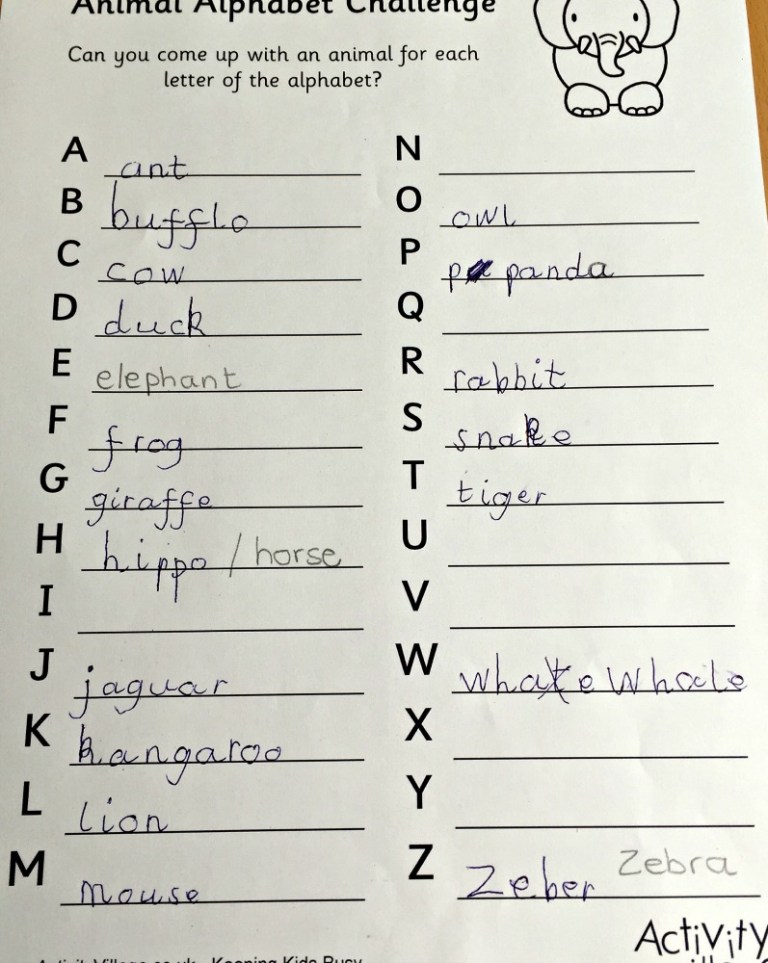 Animal Alphabet Challenge
Can you come up with an animal for each
letter of the alphabet?
A ant
B bufflo
C cow
D duck
E elephant
F frog
G giraffe
H hippo / horse
I
J jaguar
K kangaroo
L lion
M mouse
N
O owl
P panda
Q
R rabbit
S snake
T tiger
U
V
W whale whale
X
Y
Z Zeber Zebra
Activity